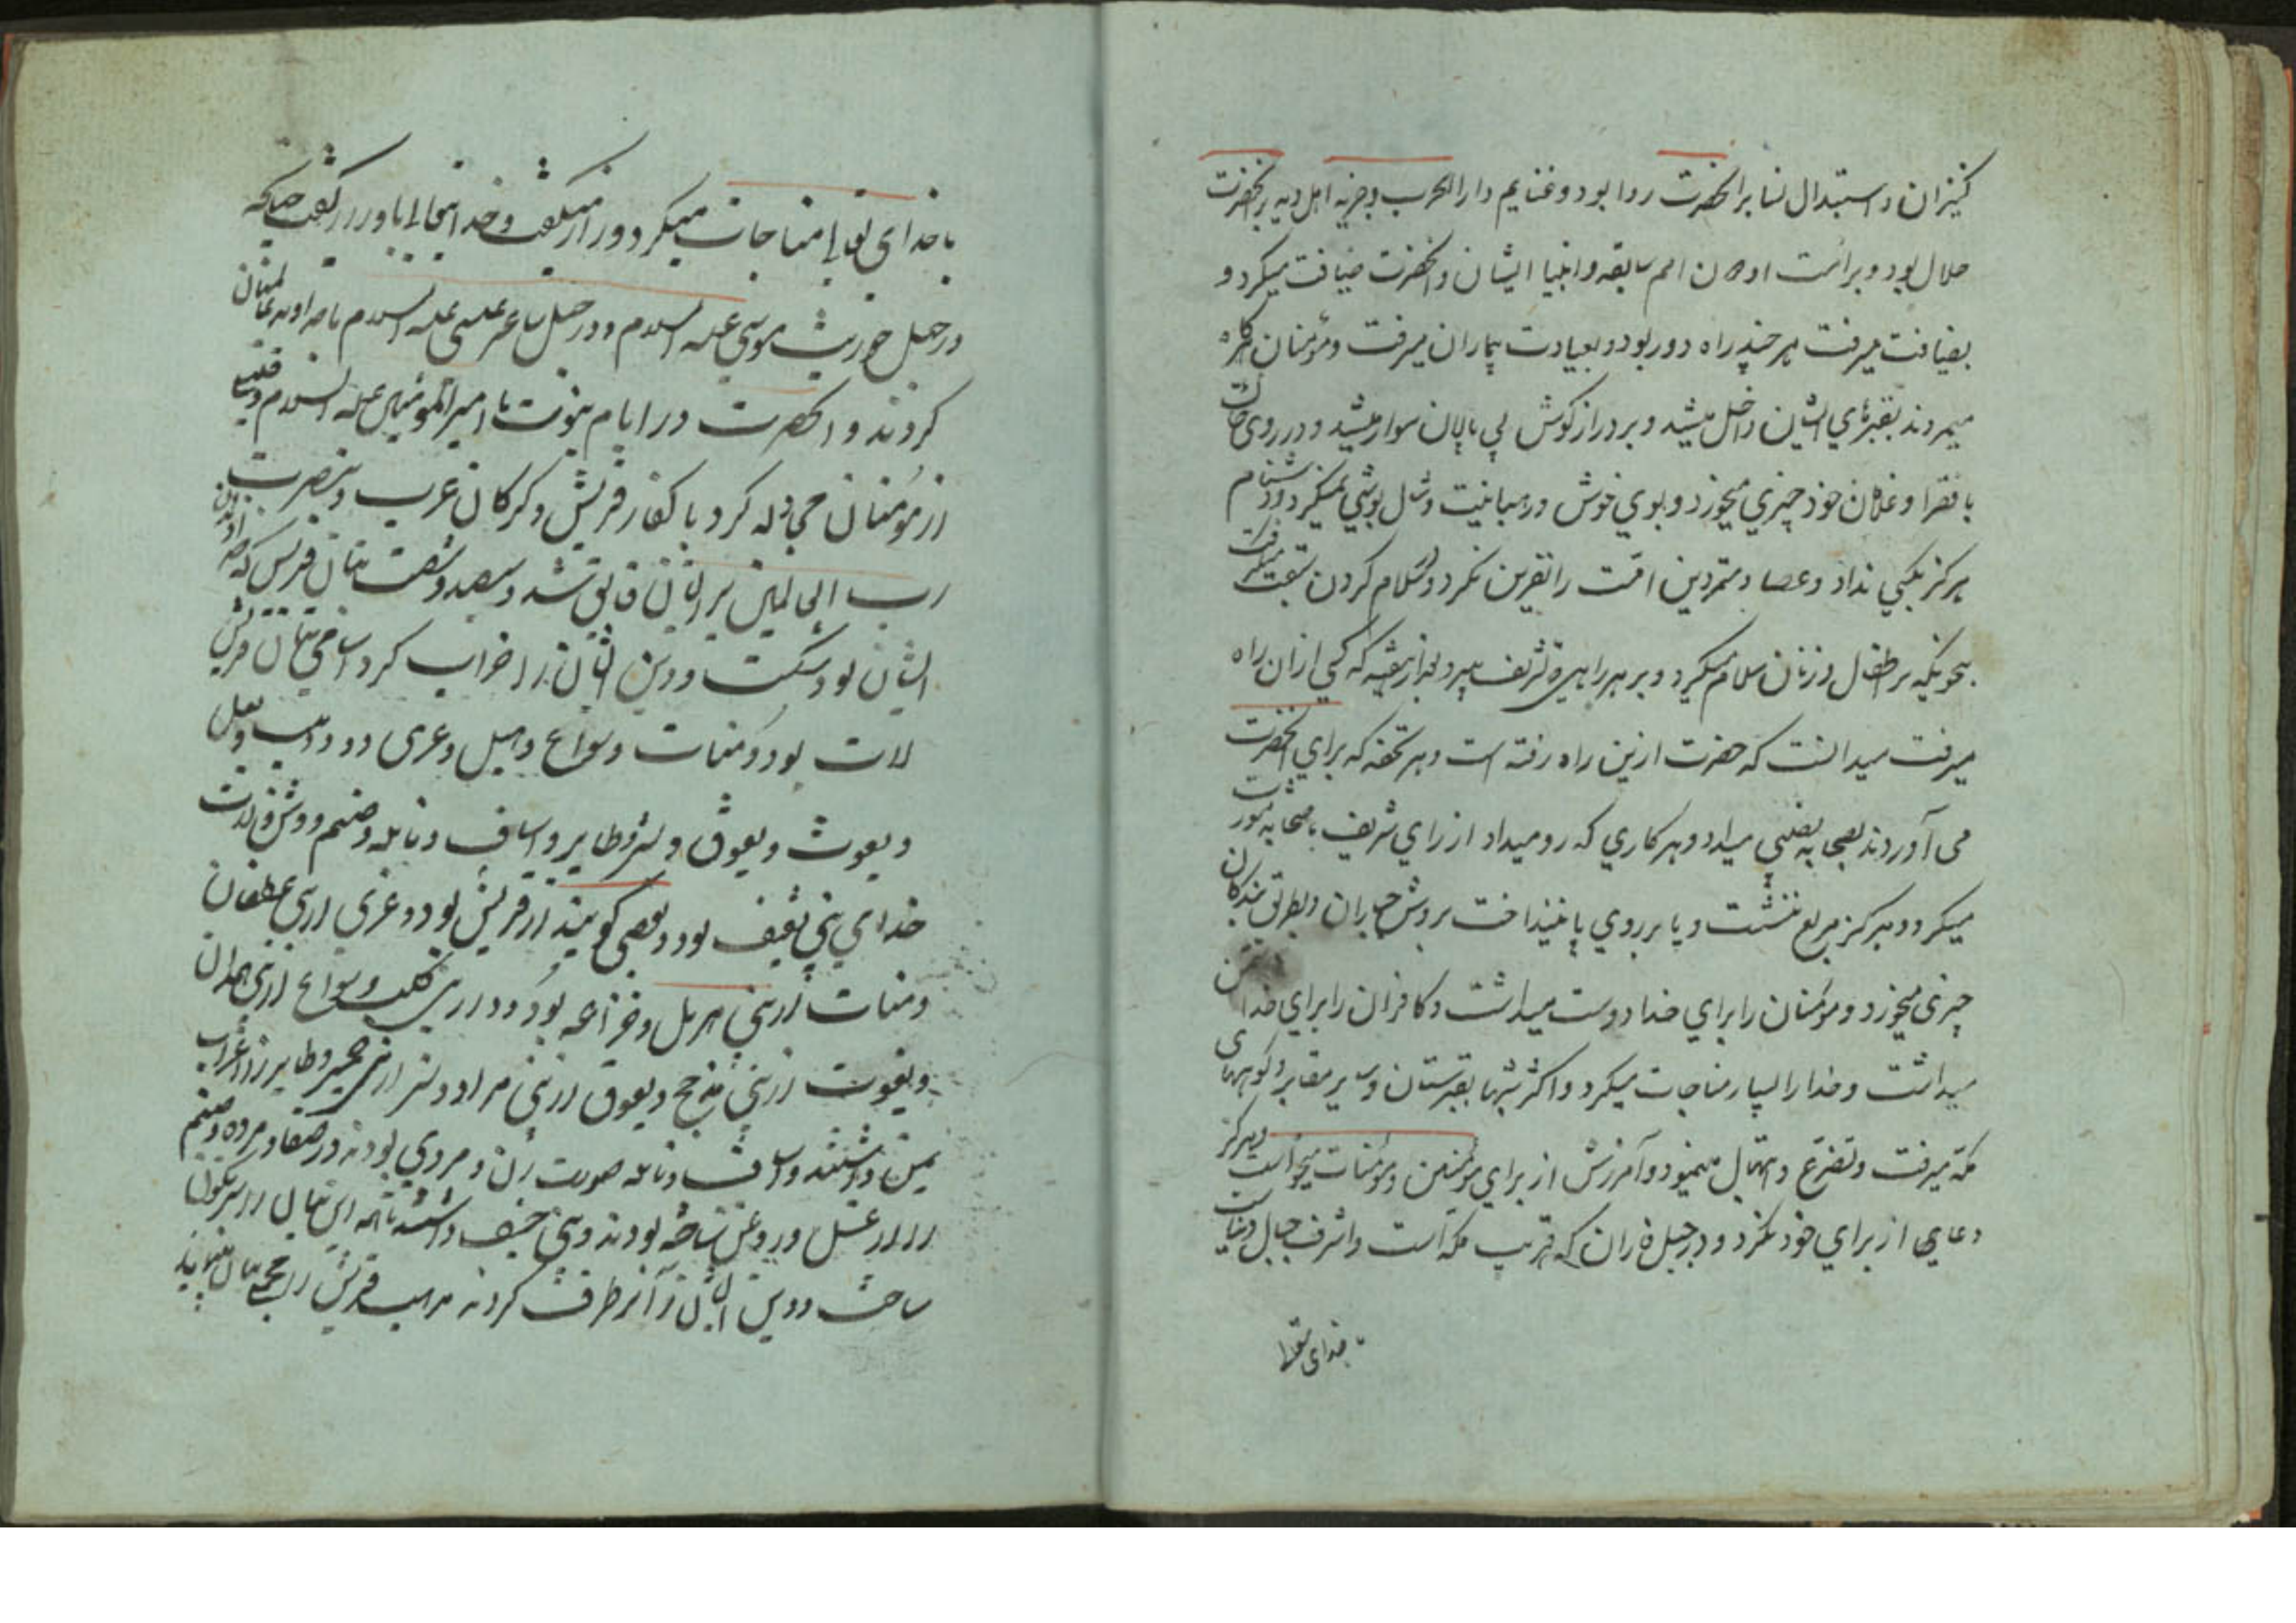 کنیزان و استبدال نسا بر انحضرت روا بود و غنایم دار الحرب و جزیه اهل دیه بر انحضرت
حلال بود و برائت امم سابقه و انبیا ایشان و انحضرت ضیافت میکرد و
بضیافت میرفت هر چند راه دور بود و بعیادت بیماران میرفت و مؤمنان که
میمردند بقبرهای ایشان داخل میشد و بر دراز کوش بی پالان سوار میشد و در روی خاک
با فقرا و غلامان خود چیزی میخورد و بوی خوش و شال پوشی میکرد و دشنام
هرگز بکسی نداد و عصا و متمردین امت را نفرین نکرد و سلام کردن سبقت میگرفت
بنحویکه بر اطفال و زنان سلام میکرد و بر هر راهی تشریف میبرد که کسی ازان راه
میرفت میدانست که حضرت ازین راه رفته است و هر تحفه که برای انحضرت
می آوردند بصحابه بعضی میداد و هر کاری که رو میداد از رای شریف با صحابه مشورت
میکرد و هرگز مربع ننشست و پا بر روی پا نینداخت بروش جباران و بطریق بندگان
چیزی میخورد و مؤمنان را برای خدا دوست میداشت و کافران را برای خدا دشمن
میداشت و خدا را بسیار مناجات میکرد و اکثر شبها بقبرستان و سایر مقابر و کوههای
مکه میرفت و تضرع و ابتهال مینمود و آمرزش از برای مؤمنین و مؤمنات میخواست و هرگز
دعایی از برای خود نکرد و در جبل فاران که قریب مکه است و اشرف جبال دنیاست
با خدای تعالی
با خدای تعالی مناجات میکرد و راز میگفت و خدا تعالی با او راز گفت چنانکه
در جبل حوریث موسی علیه السلام و در جبل ساعیر عیسی علیه السلام با خداوند عالمیان
کردند و انحضرت در ایام نبوت با امیرالمؤمنین علیه السلام و
از مؤمنان مجادله کرد با کفار قریش و گرگان عرب و بنصرت
رب العالمین بر ایشان فایق شد و سیصد و شصت بتان قریش که خداوندان
ایشان بود شکست و دین ایشان را خراب کرد اسامی بتان قریش
لات بود و منات و سواع و هبل و عزی و ود و بعل
و یغوث و یعوق و نسر و طایر و اساف و نایله و ضیم و لات
خدای بنی ثقیف بود و بعضی گویند از قریش بود و عزی از بنی غطفان
و منات از بنی هذیل و خزاعه بود و ود از بنی کلب و سواع از بنی همدان
و یغوث از بنی مذحج و یعوق از بنی مراد و نسر از بنی حمیر و طایر از اعراب
یمن داشتند و اساف و نایله صورت زن و مردی بودند در صفا و مروه و ضیم
را از عسل و روغن ساخته بودند و بنی حنیف داشتند تا آنکه این بتان را سرنگون
ساخت و دین ایشان را برطرف کردند مذهب قریش